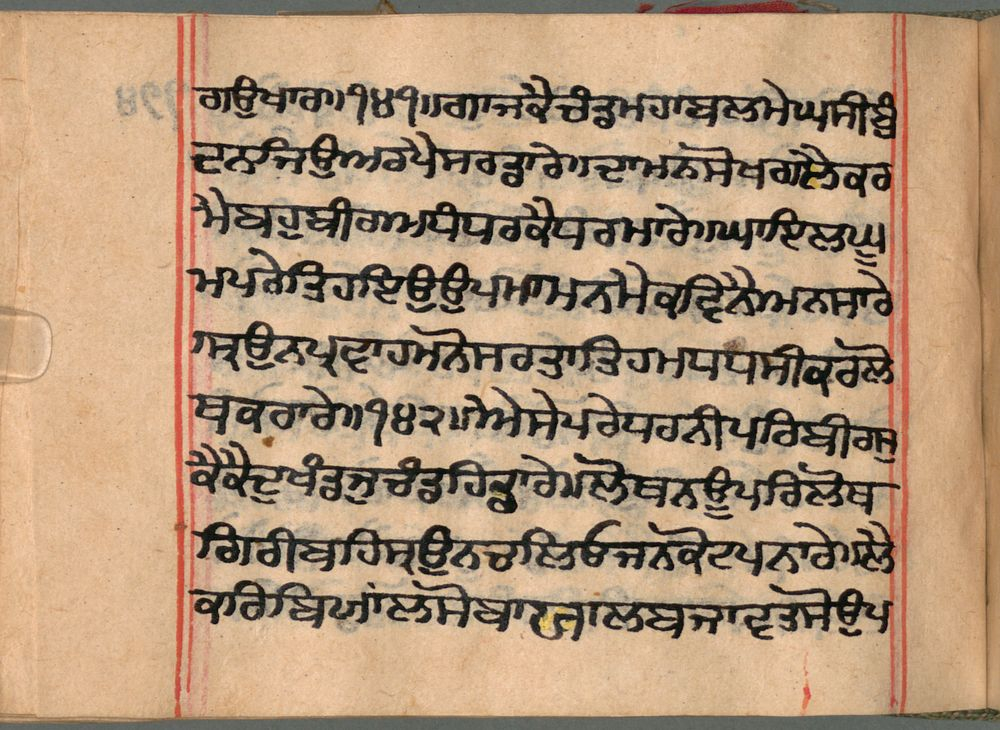 ਗਉਖਾਰਾ॥੧੪੧॥ਗਾਜਕੈਚੰਡਮਹਾਬਲਮੇਘਸੀਬੂੰ
ਦਨਜਿਉਅਰਪੈਸਰਡਾਰੇ॥ਦਾਮਨਸੋਖਗਲੈਕਰ
ਮੈਬਹੁਬੀਰਅਧੰਧਰਕੈਧਰਮਾਰੇ॥ਘਾਇਲਘੂ
ਮਪਰੇਤਿਹਇਉਉਪਮਾਮਨਮੈਕਵਿਨੈਅਨਸਾਰੇ
॥ਸ੍ਰਉਨਪ੍ਰਵਾਹਮਨੋਸਰਤਾਤਿਹਮਧਧਸੀਕਰਲੋ
ਥਕਰਾਰੇ॥੧੪੨॥ਐਸੇਪਰੇਧਰਨੀਪਰਿਬੀਰਸੁ
ਕੈਕੈਦੁਖੰਡਜੁਚੰਡਹਿਡਾਰੇ॥ਲੋਥਨਊਪਰਿਲੋਥ
ਗਿਰੀਬਹਿਸ੍ਰਉਨਚਲਿਓਜਨਕੋਟਪਨਾਰੇ॥ਲੈ
ਕਰਿਬਿਯਾਲਸੋਬਯਾਲਬਜਾਵਤਸੋਉਪ